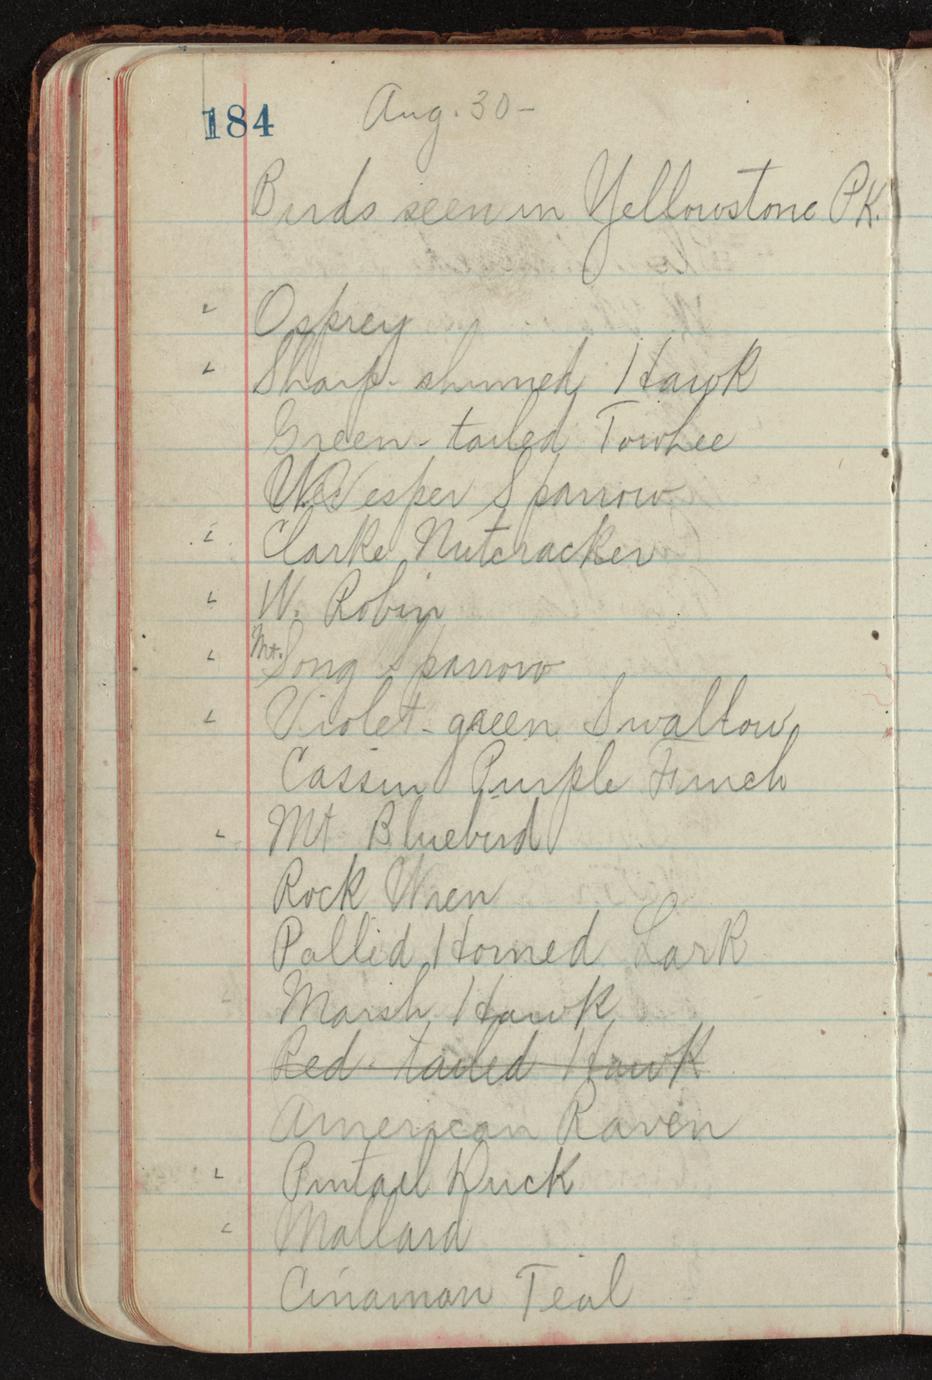 184 Aug. 30-
Birds seen in Yellowstone PK.
Osprey
Sharp-shinned Hawk
Green-tailed Towhee
W. Vesper Sparrow
Clarke Nutcracker
W. Robin
Mt. Song Sparrow
Violet-green Swallow
Cassin Purple Finch
Mt Bluebird
Rock Wren
Pallid Horned Lark
Marsh Hawk
Red-tailed Hawk
American Raven
Pintail Duck
Mallard
Cinaman Teal